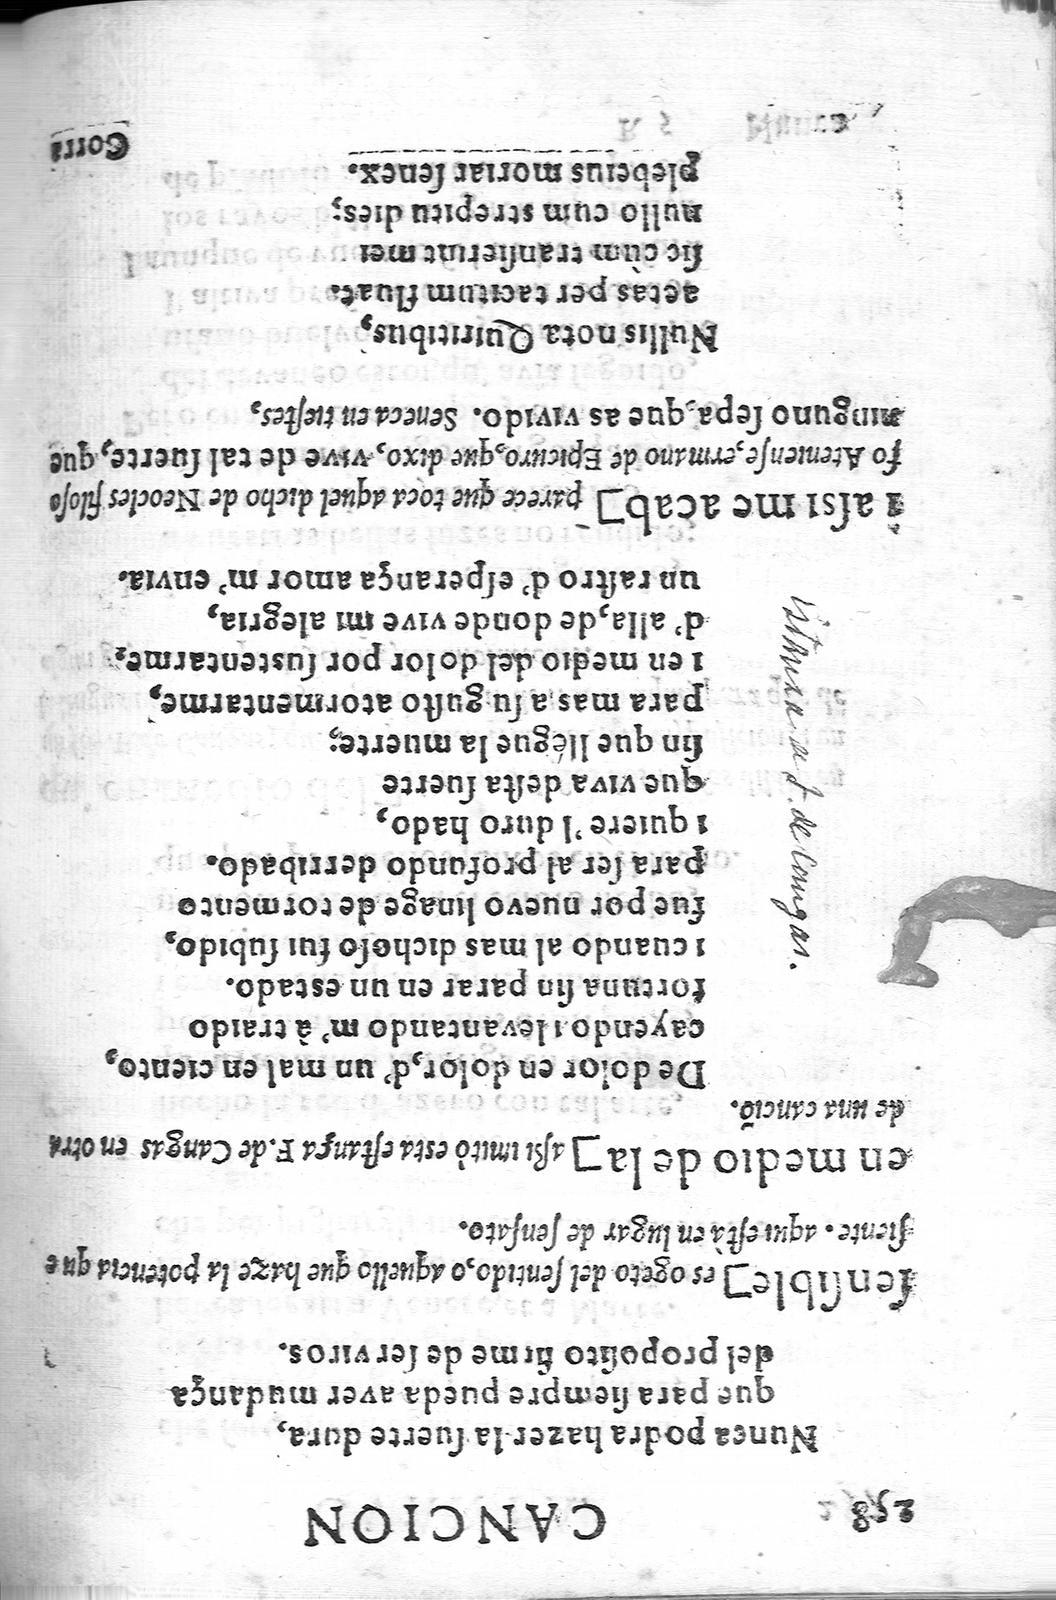 258
CANCION
Nunca podra hazer la ſuerte dura,
que para ſiempre pueda aver mudança
del propoſito firme de ſerviros.
ſenſible] es ogeto del ſentido, o aquello que haze la potencia que
ſiente. aqui eſtà en lugar de ſenſato.
en medio de la] aſsi imitò esta eſtança F. de Cangas en otra
de una canciō.
De dolor en dolor, d' un mal en ciento,
cayendo i levantando m' à traido
fortuna ſin parar en un estado.
i cuando al mas dichoſo fui ſubido,
fue por nuevo linage de tormento
para ſer al profundo derribado.
i quiere 'l duro hado,
que viva deſta ſuerte
ſin que llégue la muerte;
para mas a ſu guſto atormentarme,
i en medio del dolor por ſustentarme,
d' alla, de donde vive mi alegria,
un raſtro d' eſperança amor m' envia.
i aſsi me acab] parece que toca aquel dicho de Neocles filoſo
fo Atenienſe, ermano de Epicuro, que dixo, vive de tal ſuerte, que
ninguno ſepa, que as vivido. Seneca en tieſtes,
Nullis nota Quiritibus,
aetas per tacitum fluat.
ſic cùm tranſierint mei
nullo cum strepitu dies;
plebeius moriar ſenex.
Corri
Estanza de F. de Cangas.